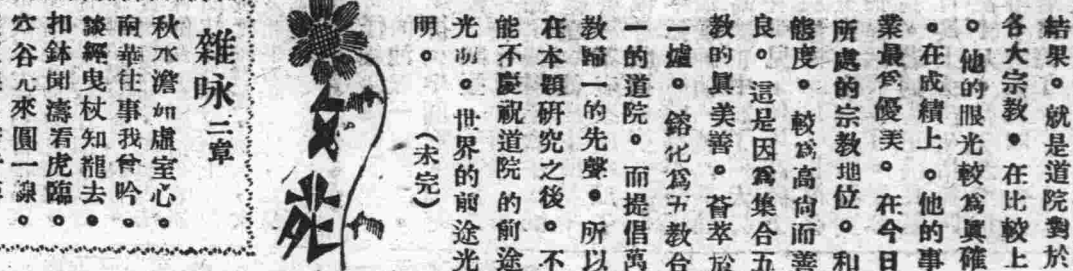 結果。就是道院對於
各大宗教。在比較上
。他的眼光較為眞確
。在成績上。他的事
業最為優美。在今日
所處的宗教地位。和
態度。較為高尙而善
良。這是因為集合五
教的眞美善。薈萃於
一爐。鎔化為五教合
一的道院。而提倡萬
教歸一的先聲。所以
在本題硏究之後。不
能不慶祝道院的前途
光明。世界的前途光
明。　（未完）
雜咏三章
秋水澹如虛室心。
南華往事我曾吟。
談經曳杖知龍去。
扣鉢聞濤看虎臨。
谷元來圓一